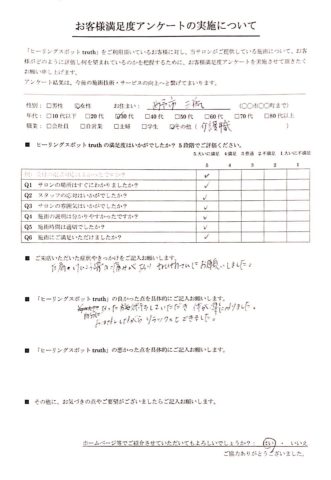 お客様満足度アンケートの実施について
「ヒーリングスポット truth」をご利用頂いているお客様に対し、当サロンがご提供している施術について、お客
様がどのように評価し何を望まれているのかを把握するために、お客様満足度アンケートを実施させて頂きたく
お願い申し上げます。
アンケート結果は、今後の施術技術・サービスの向上へと繋げてまいります。
性別：□男性 ☑女性 お住まい： （○○市○○町まで）
年代：□10代以下 □20代 ☑30代 □40代 □50代 □60代 □70代 □80代以上
職業：□会社員 □自営業 □主婦 □学生 ☑その他（介護職）
■ ヒーリングスポット truth の満足度はいかがでしたか？ 5段階でご評価ください。
5大いに満足 4満足 3普通 2不満足 1大いに不満足
5 4 3 2 1
Q1 サロンの場所はすぐにわかりましたか？ ✓
Q2 スタッフの対応はいかがでしたか？ ✓
Q3 サロンの雰囲気はいかがでしたか？ ✓
Q4 施術の説明は分かりやすかったですか？ ✓
Q5 施術時間は適切でしたか？ ✓
Q6 施術にご満足いただけましたか？ ✓
■ ご来店いただいた症状やきっかけをご記入お願いします。
お願いしました。
■ 「ヒーリングスポット truth」の良かった点を具体的にご記入お願いします。
合った施術をしていただき 体が楽になりました。
リラックスできました。
■ 「ヒーリングスポット truth」の悪かった点を具体的にご記入お願いします。
■ その他に、お気づきの点やご要望がございましたらご記入お願いします。
ホームページ等でご紹介させていただいてもよろしいでしょうか？：はい ・ いいえ
ご協力ありがとうございました。